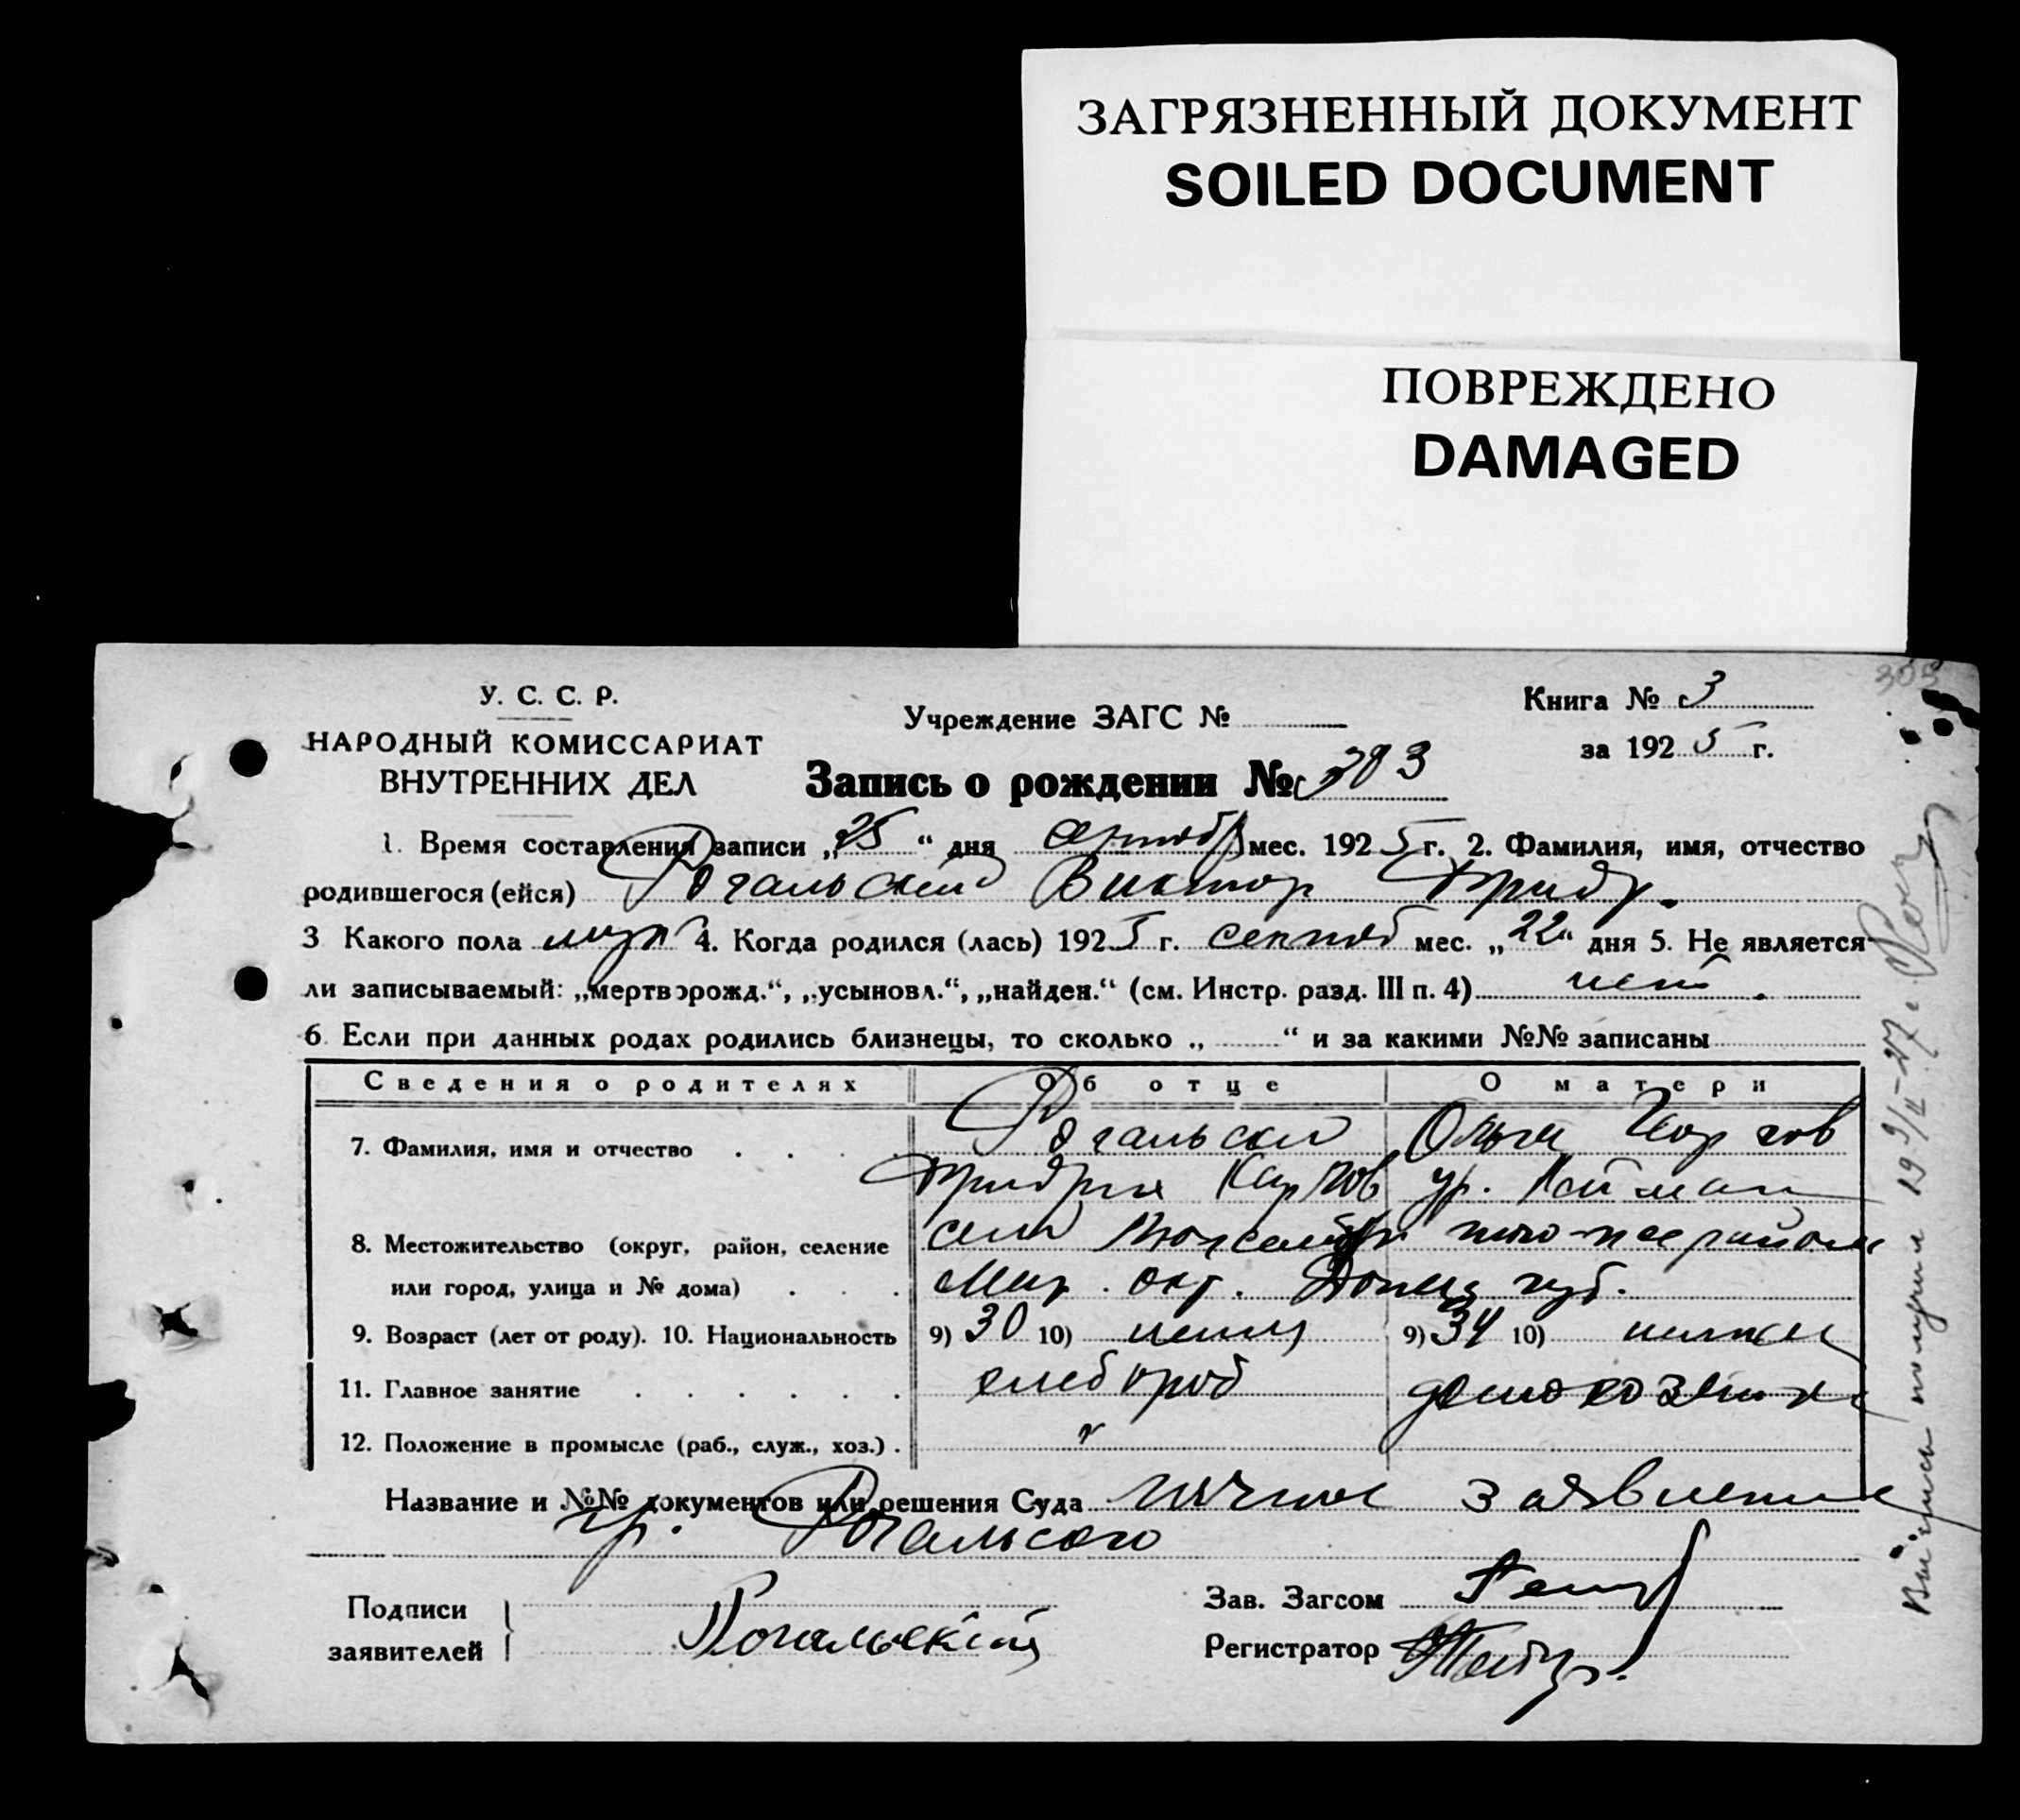 ЗАГРЯЗНЕННЫЙ ДОКУМЕНТ
SOILED DOCUMENT
ПОВРЕЖДЕНО
DAMAGED
303
У. С. С. Р.
НАРОДНЫЙ КОМИССАРИАТ
ВНУТРЕННИХ ДЕЛ
Учреждение ЗАГС №
Книга № 3
за 1925 г.
Запись о рождении № 303
1. Время составления записи „25“ дня сентябр мес. 1925 г. 2. Фамилия, имя, отчество
родившегося (ейся) Рогальский Виктор Фридр.
3 Какого пола муж 4. Когда родился (лась) 1925 г. сентяб мес. „22“ дня 5. Не является
ли записываемый: „мертворожд.“, „усыновл.“, „найден.“ (см. Инстр. разд. III п. 4) нет.
6. Если при данных родах родились близнецы, то сколько „ “ и за какими №№ записаны
Сведения о родителях Об отце О матери
7. Фамилия, имя и отчество Рогальский Ольга Георгов
Фридрих Карлов ур. Нейман
8. Местожительство (округ, район, селение село Люксембург того-же района
или город, улица и № дома) Мар. окр. Донец губ.
9. Возраст (лет от роду). 10. Национальность 9) 30 10) немец 9) 34 10) немка
11. Главное занятие хлебороб домохозяйка
12. Положение в промысле (раб., служ., хоз.)
Название и №№ документов или решения Суда личное заявление
гр. Рогальского
Подписи
заявителей Рогальский
Зав. Загсом
Регистратор
Выпись получил 19 3/II-27 г.